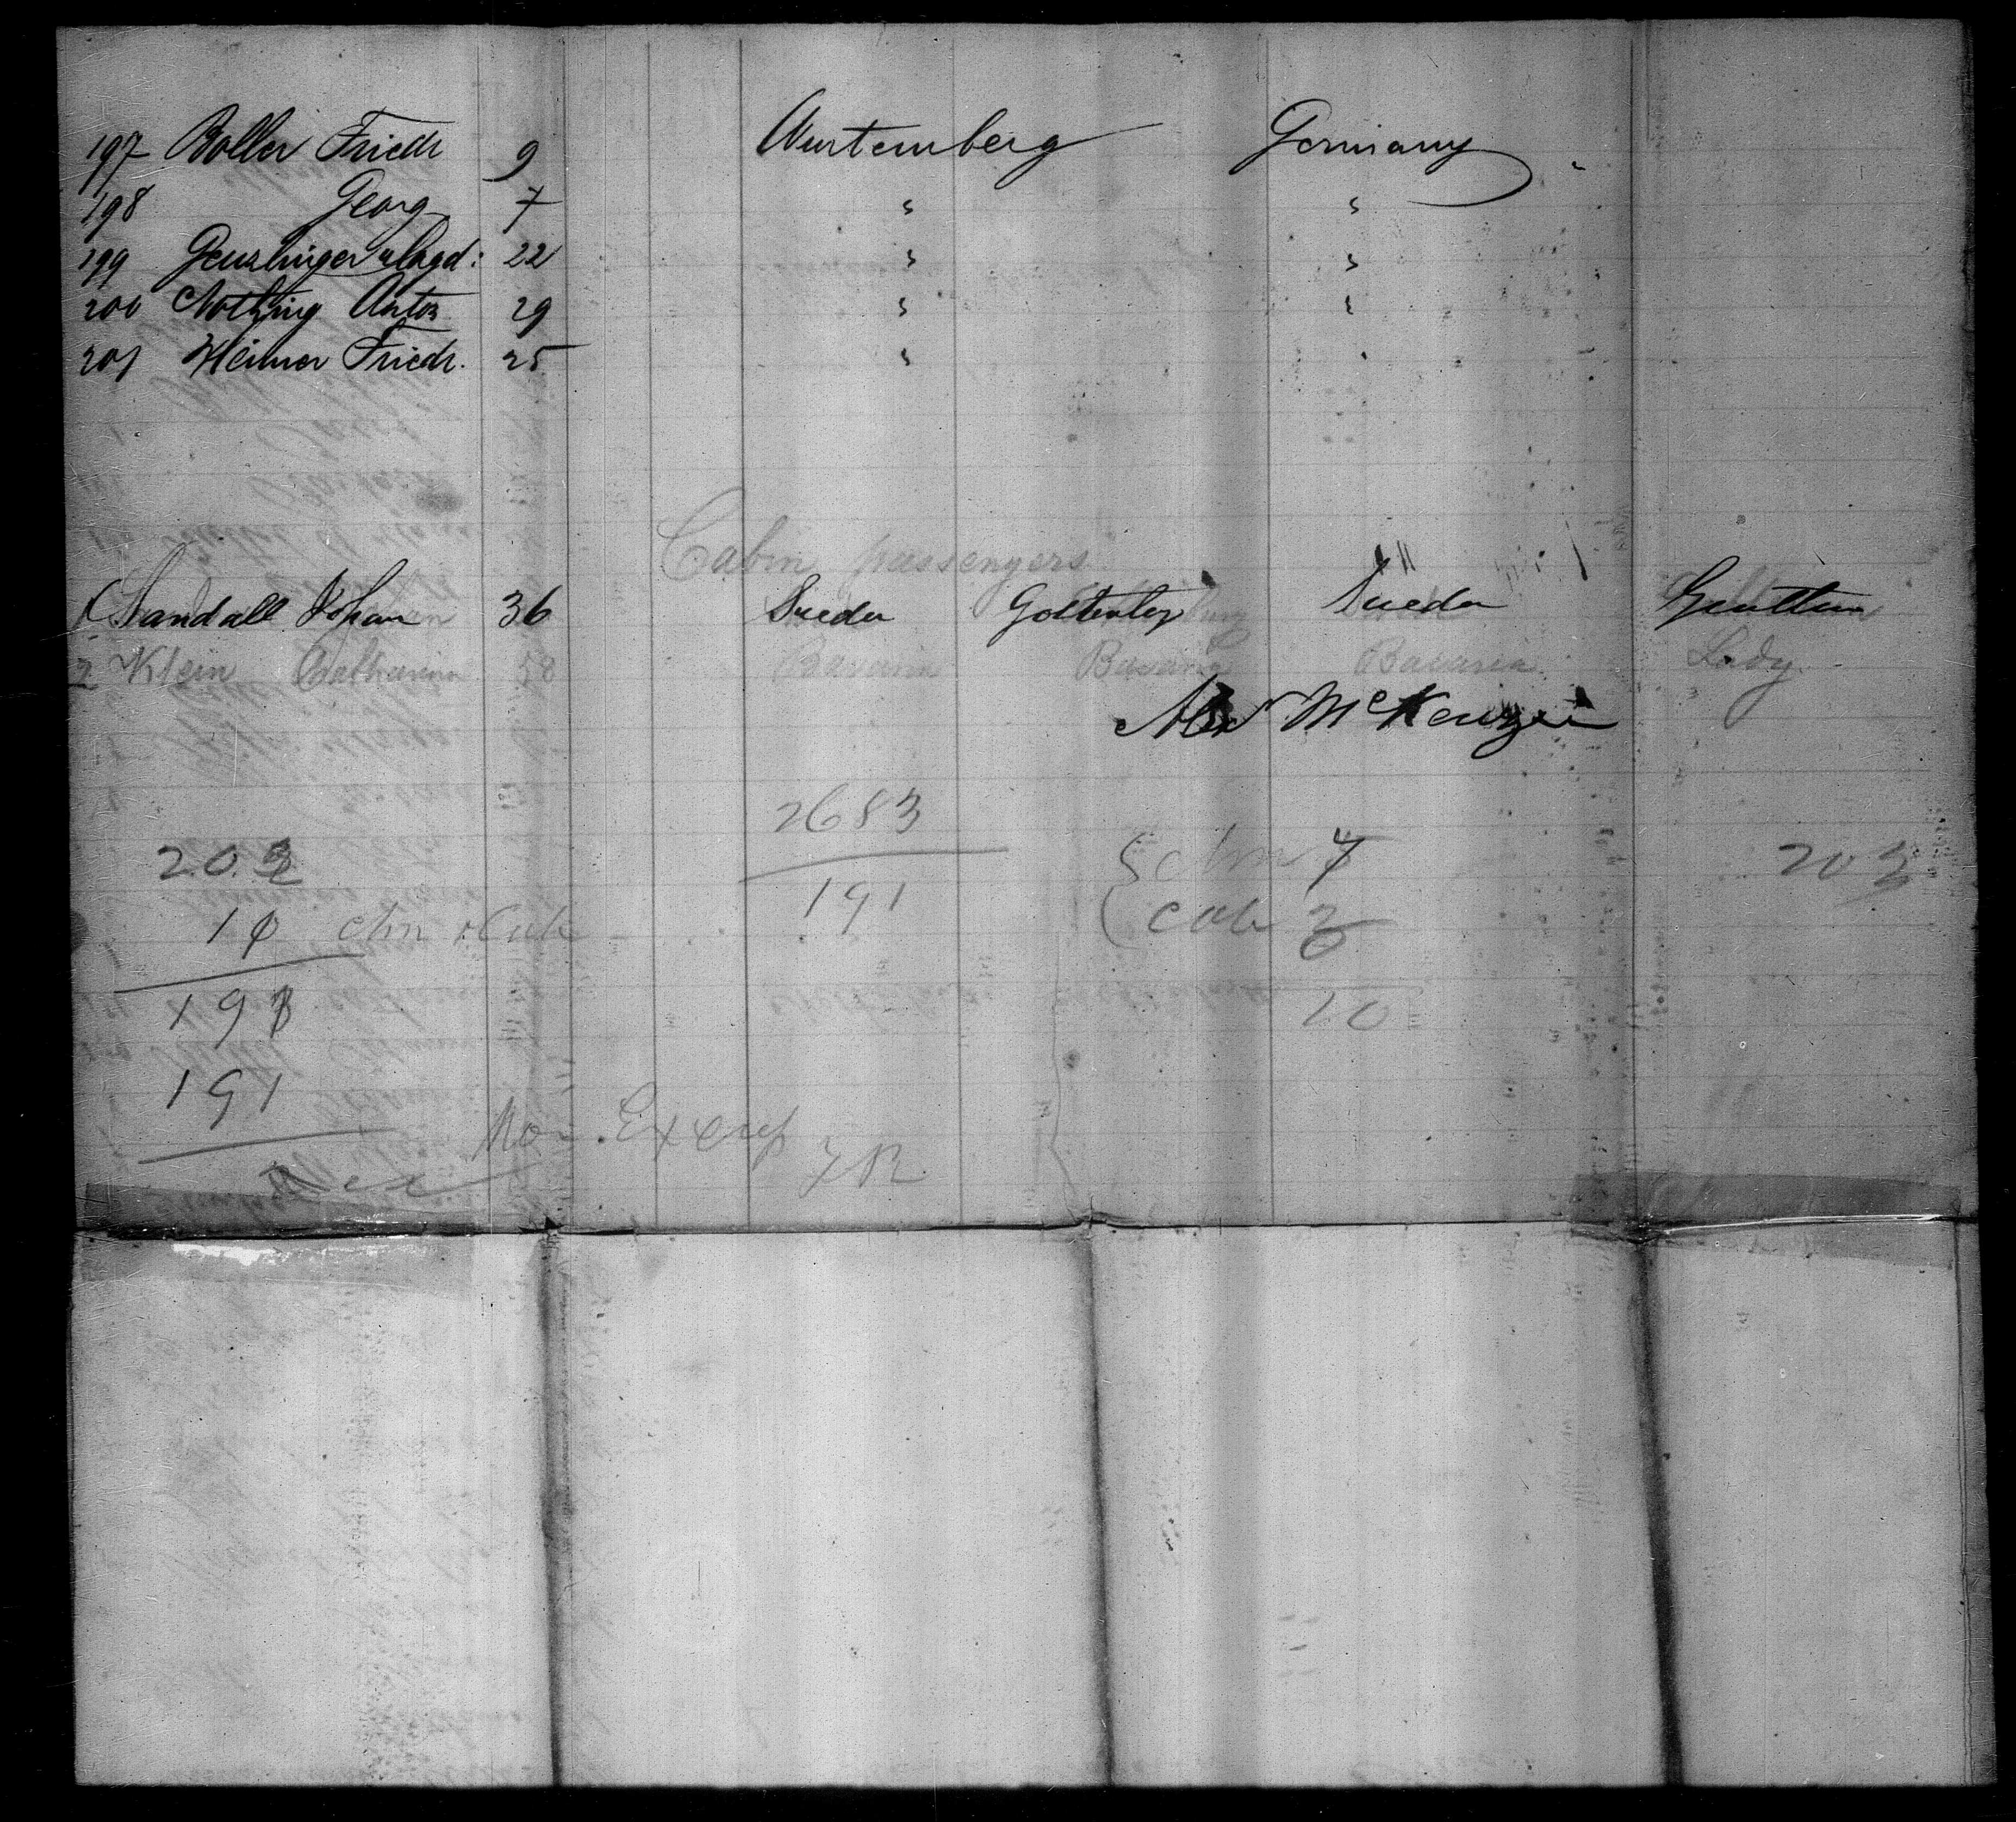 197 Boller Friedr 9 Wurtemberg Germany
198 Georg 7 " "
199 Magd: 22 " "
200 Nothing Anton 29 " "
201 Heimer Friedr. 25 " "
Cabin passengers
1 Sandall Johan 36 Sweden Gottenburg Sweden Gentleman
2 Klein Catharina 58 Bavaria Bavaria Bavaria Lady
Alex McKenzie
2683
203 Am 7 203
191
10 Am & Cab Cab 3
193 10
191
No Excep